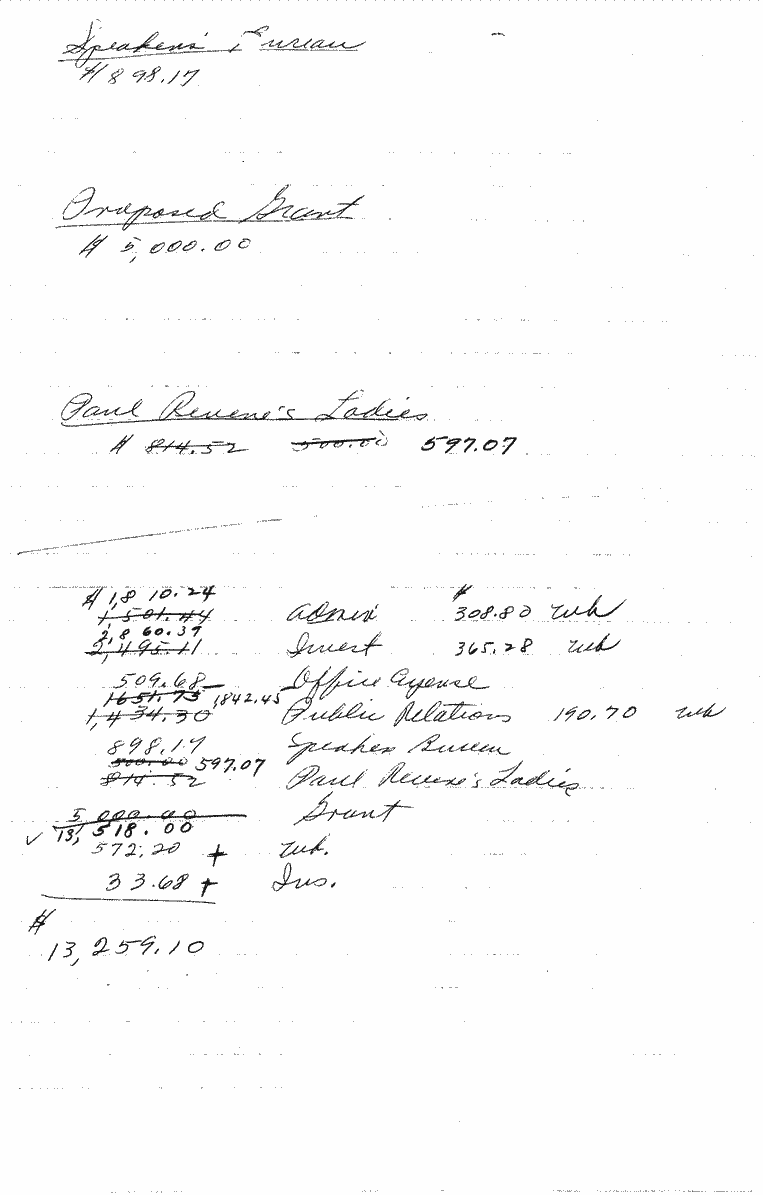 Speakers' Bureau
$898.17
Proposed Grant
$ 5,000.00
Paul Revere's Ladies
$ 814.52 500.00 597.07
$ 1,810.24
1,501.44 Admin $ 308.80 wh
2,860.39
2,495.11 Invest 365.28 wh
509.68 Office Expense
1651.75 1,842.45
1,434.30 Public Relations 190.70 wh
898.17 Speakers Bureau
500.00 597.07
814.52 Paul Revere's Ladies
5,000.00 Grant
✓ 13,518.00
572.20 + wh.
33.68 + Ins.
$
13,259.10